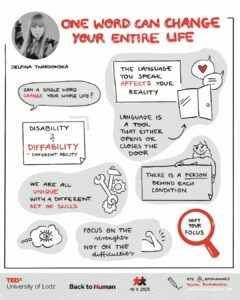 ONE WORD CAN CHANGE
YOUR ENTIRE LIFE
DELFINA TWARDOWSKA
CAN A SINGLE WORD
CHANGE YOUR WHOLE LIFE?
THE LANGUAGE
YOU SPEAK
AFFECTS YOUR
REALITY
DISABILITY
DIFFABILITY
= DIFFERENT ABILITY
LANGUAGE IS
A TOOL
THAT EITHER
OPENS OR
CLOSES THE
DOOR
WE ARE ALL
UNIQUE
WITH A DIFFERENT
SET OF SKILLS
THERE IS A PERSON
BEHIND EACH
CONDITION
FOCUS ON THE
strengths
NOT ON THE
difficulties
SHIFT
YOUR
FOCUS
TEDx
University of Lodz
Back to Human
10 X 2025